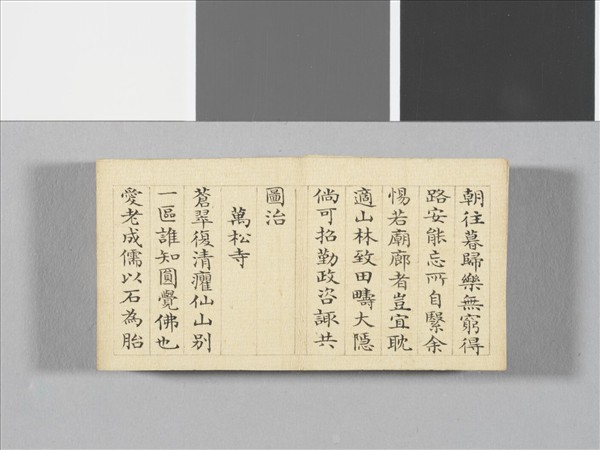 朝往暮歸樂無窮得
路安能忘所自緊余
惕若廟廊者豈宜耽
適山林致田疇大隱
倘可招勤政咨諏共
圖治
萬松寺
蒼翠復清癯仙山别
一區誰知圓覺佛也
愛老成儒以石為胎